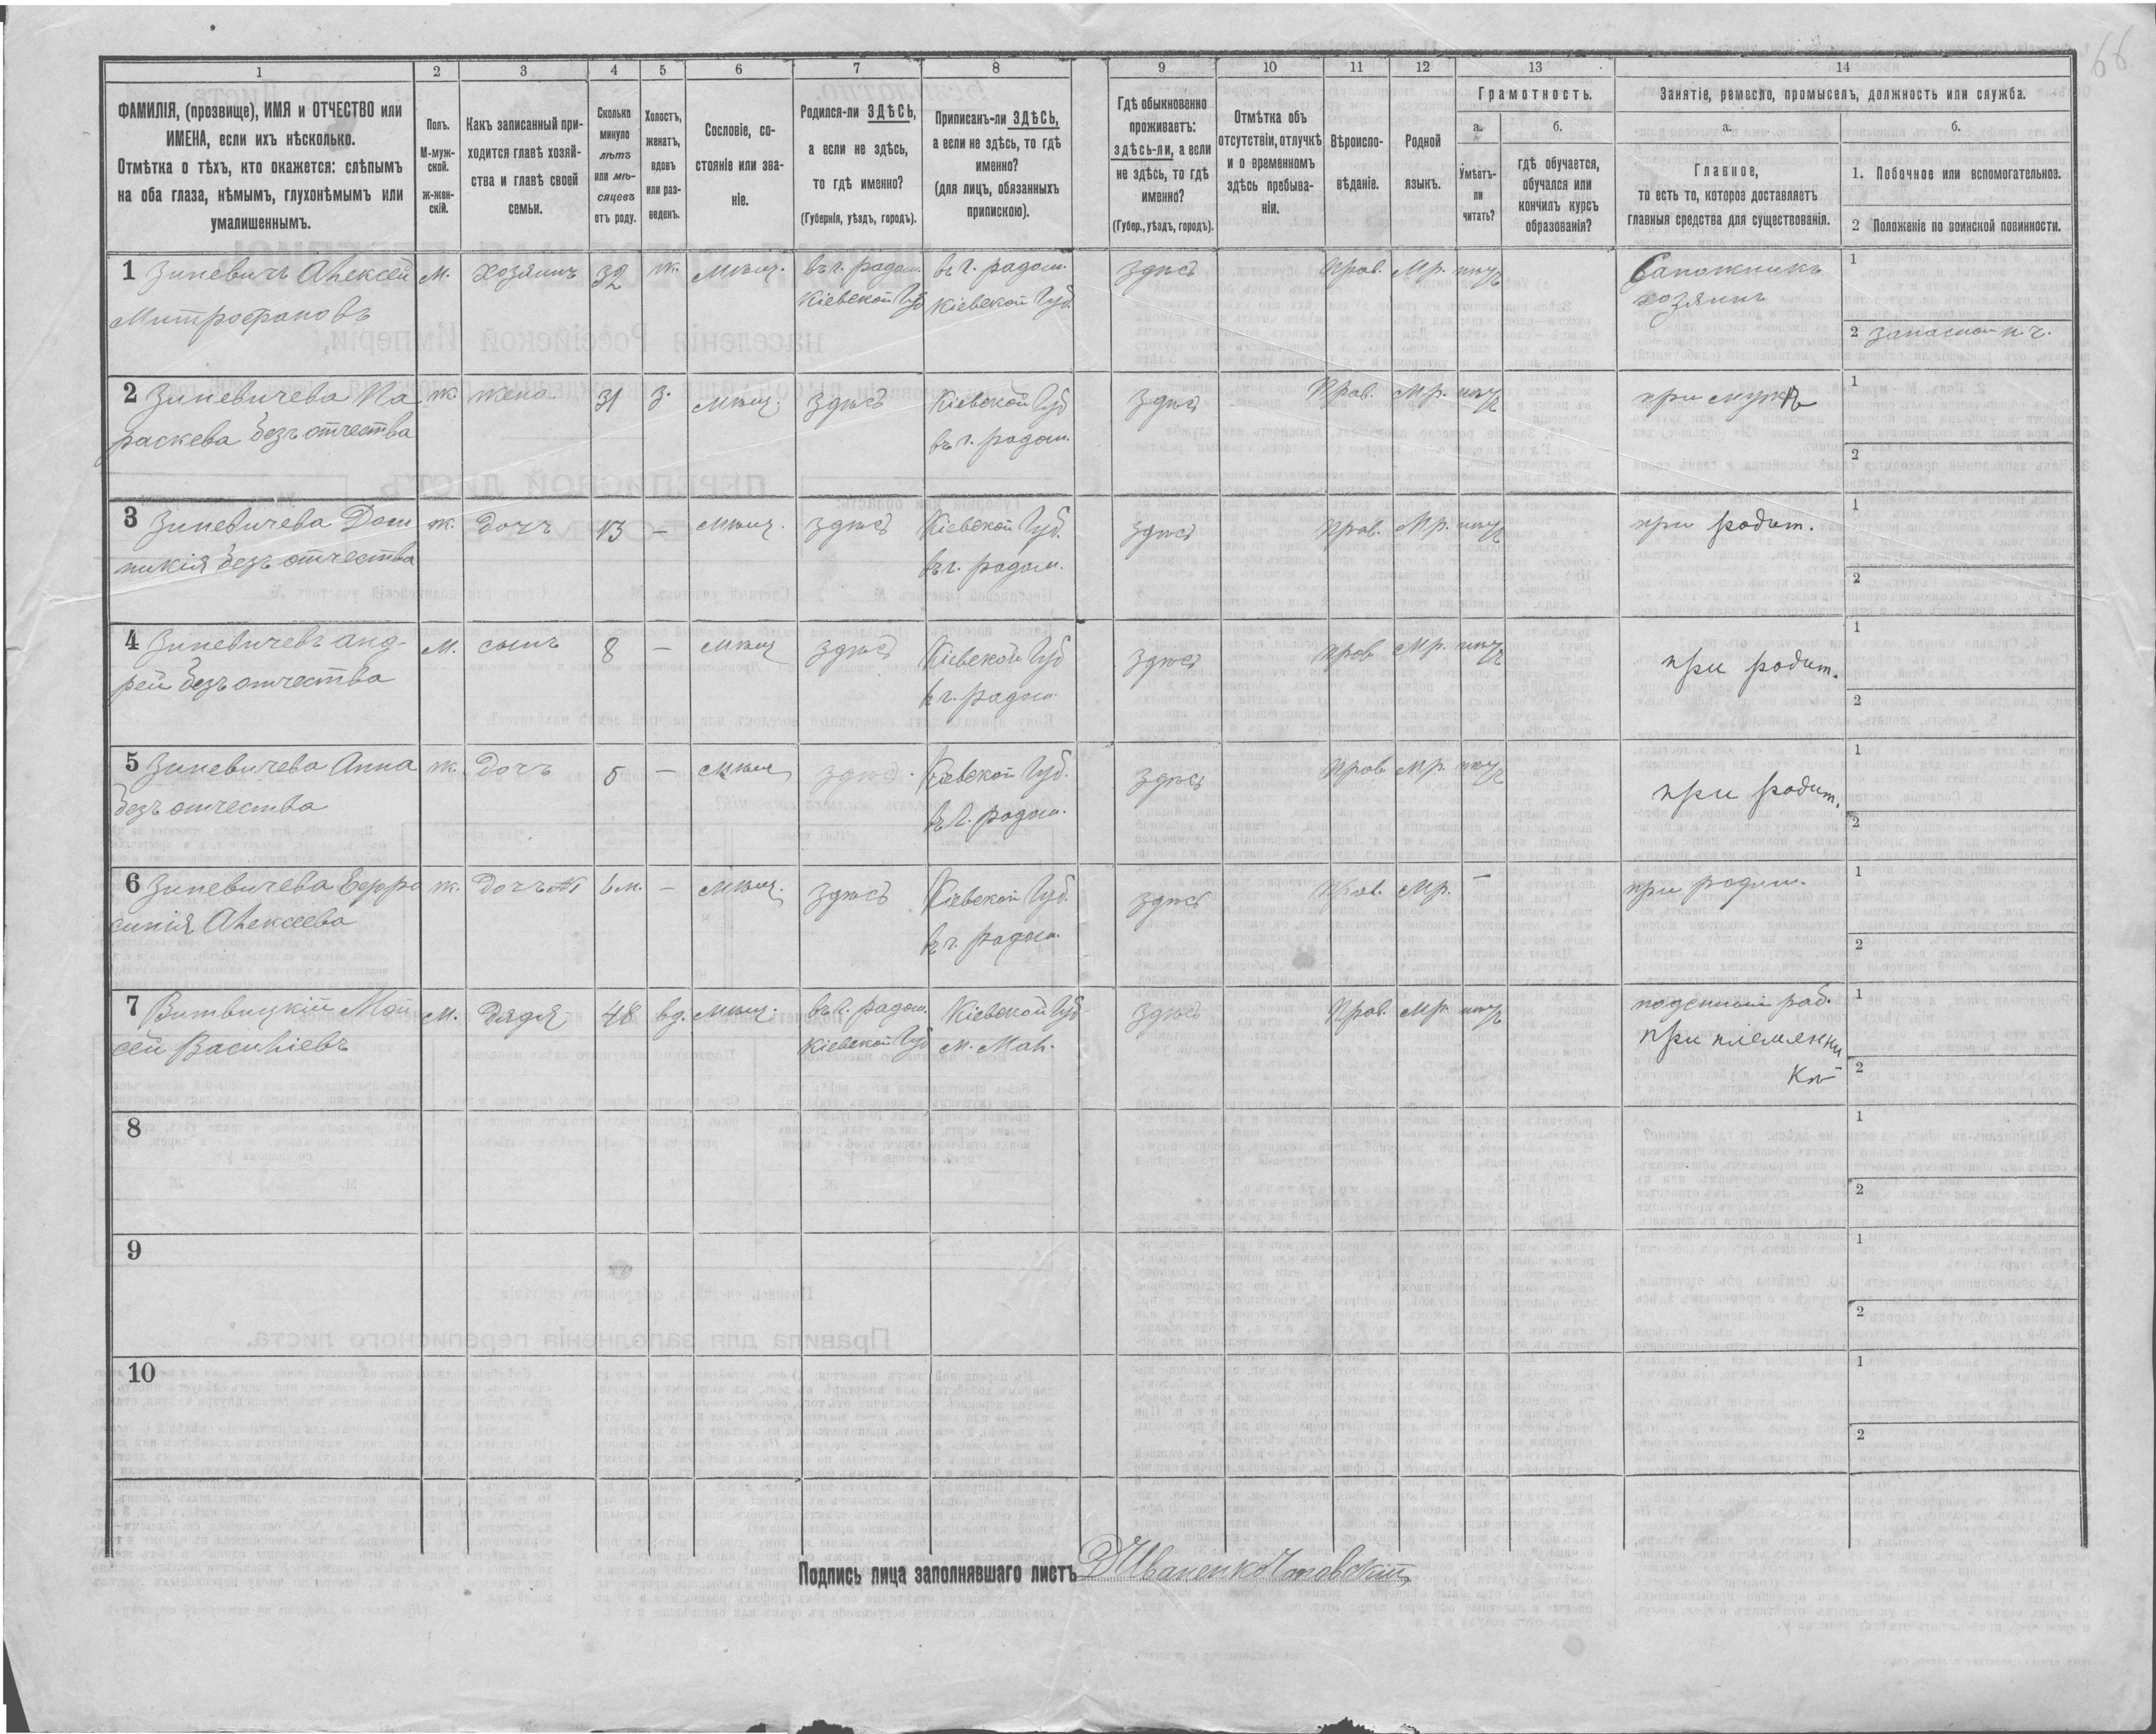 66
1 2 3 4 5 6 7 8 9 10 11 12 13 14
ФАМИЛІЯ, (прозвище), ИМЯ и ОТЧЕСТВО или
ИМЕНА, если ихъ нѣсколько.
Отмѣтка о тѣхъ, кто окажется: слѣпымъ
на оба глаза, нѣмымъ, глухонѣмымъ или
умалишеннымъ.
Полъ.
М-муж-
ской.
ж-жен-
скій.
Какъ записанный при-
ходится главѣ хозяй-
ства и главѣ своей
семьи.
Сколько
минуло
лѣтъ
или мѣ-
сяцевъ
отъ роду.
Холостъ,
женатъ,
вдовъ
или раз-
веденъ.
Сословіе, со-
стояніе или зва-
ніе.
Родился-ли ЗДѢСЬ,
а если не здѣсь,
то гдѣ именно?
(Губернія, уѣздъ, городъ).
Приписанъ-ли ЗДѢСЬ,
а если не здѣсь, то гдѣ
именно?
(для лицъ, обязанныхъ
припискою).
Гдѣ обыкновенно
проживаетъ:
здѣсь-ли, а если
не здѣсь, то гдѣ
именно?
(Губер., уѣздъ, городъ).
Отмѣтка объ
отсутствіи, отлучкѣ
и о временномъ
здѣсь пребыва-
ніи.
Вѣроиспо-
вѣданіе.
Родной
языкъ.
Грамотность.
а.
Умѣетъ-
ли
читать?
б.
гдѣ обучается,
обучался или
кончилъ курсъ
образованія?
Занятіе, ремесло, промыселъ, должность или служба.
а.
Главное,
то есть то, которое доставляетъ
главныя средства для существованія.
б.
1. Побочное или вспомогательное.
2 Положеніе по воинской повинности.
1 Зиневичъ Алексѣй М. хозяинъ 32 ж. Мѣщ. въ г. радом. въ г. радом. Здѣсь Прав. Мр. Сапожникъ 1
Митрофановъ Кіевской Губ Кіевской Губ. хозяинъ
2
2 Зиневичева Па ж. жена 31 З. Мѣщ. Здѣсь Кіевской Губ Здѣсь Прав. Мр. при мужѣ 1
раскева безъ отчества въ г. радом.
2
3 Зиневичева Дом ж. Дочь 13 — Мѣщ. Здѣсь Кіевской Губ. Здѣсь Прав. Мр. при родит. 1
никія безъ отчества въ г. радом.
2
4 Зиневичевъ Анд- М. сынъ 8 — Мѣщ Здѣсь Кіевской Губ Здѣсь Прав. Мр. при родит. 1
рей безъ отчества въ г. радом.
2
5 Зиневичева Анна ж. Дочь 5 — Мѣщ Здѣсь. Кіевской Губ. Здѣсь Прав. Мр. при родит. 1
безъ отчества въ г. радом.
2
6 Зиневичева Евфро ж. Дочь 6 м. — Мѣщ. Здѣсь Кіевской Губ. Здѣсь Прав. Мр. — при родит. 1
синія Алексѣева въ г. радом.
2
7 Витвицкій Мой М. Дядя 48 вд. Мѣщ. въ г. радом. Кіевской Губ Здѣсь Прав. Мр. 1
сей Васильевъ Кіевской Губ м. Мал. при племянни
кѣ 2
8 1
2
9 1
2
10 1
2
Подпись лица заполнявшаго листъ